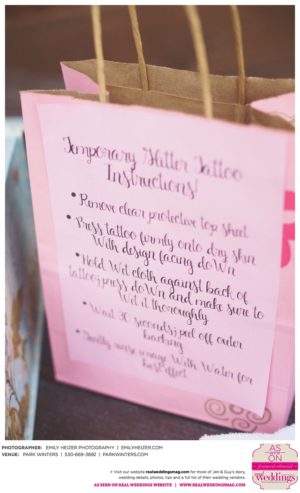 Temporary Glitter Tattoo
Instructions!
• Remove clear protective top sheet
• Press tattoo firmly onto dry skin
With design facing doWn
• Hold Wet cloth against back of
tattoo; press doWn and make sure to
Wet it thoroughly
• Wait 30 seconds; peel off outer
backing
• image With Water for
best effect
PHOTOGRAPHER: EMILY HEIZER PHOTOGRAPHY | EMILYHEIZER.COM
VENUE: PARK WINTERS | 530-669-3692 | PARKWINTERS.COM
» Visit our website realweddingsmag.com for more of Jen & Guy's story,
wedding details, photos, tips and a full list of their wedding vendors.
AS SEEN ON REAL WEDDINGS WEBSITE | WWW.REALWEDDINGSMAG.COM
AS
SEEN
ON
featured editorial
Real
Weddings